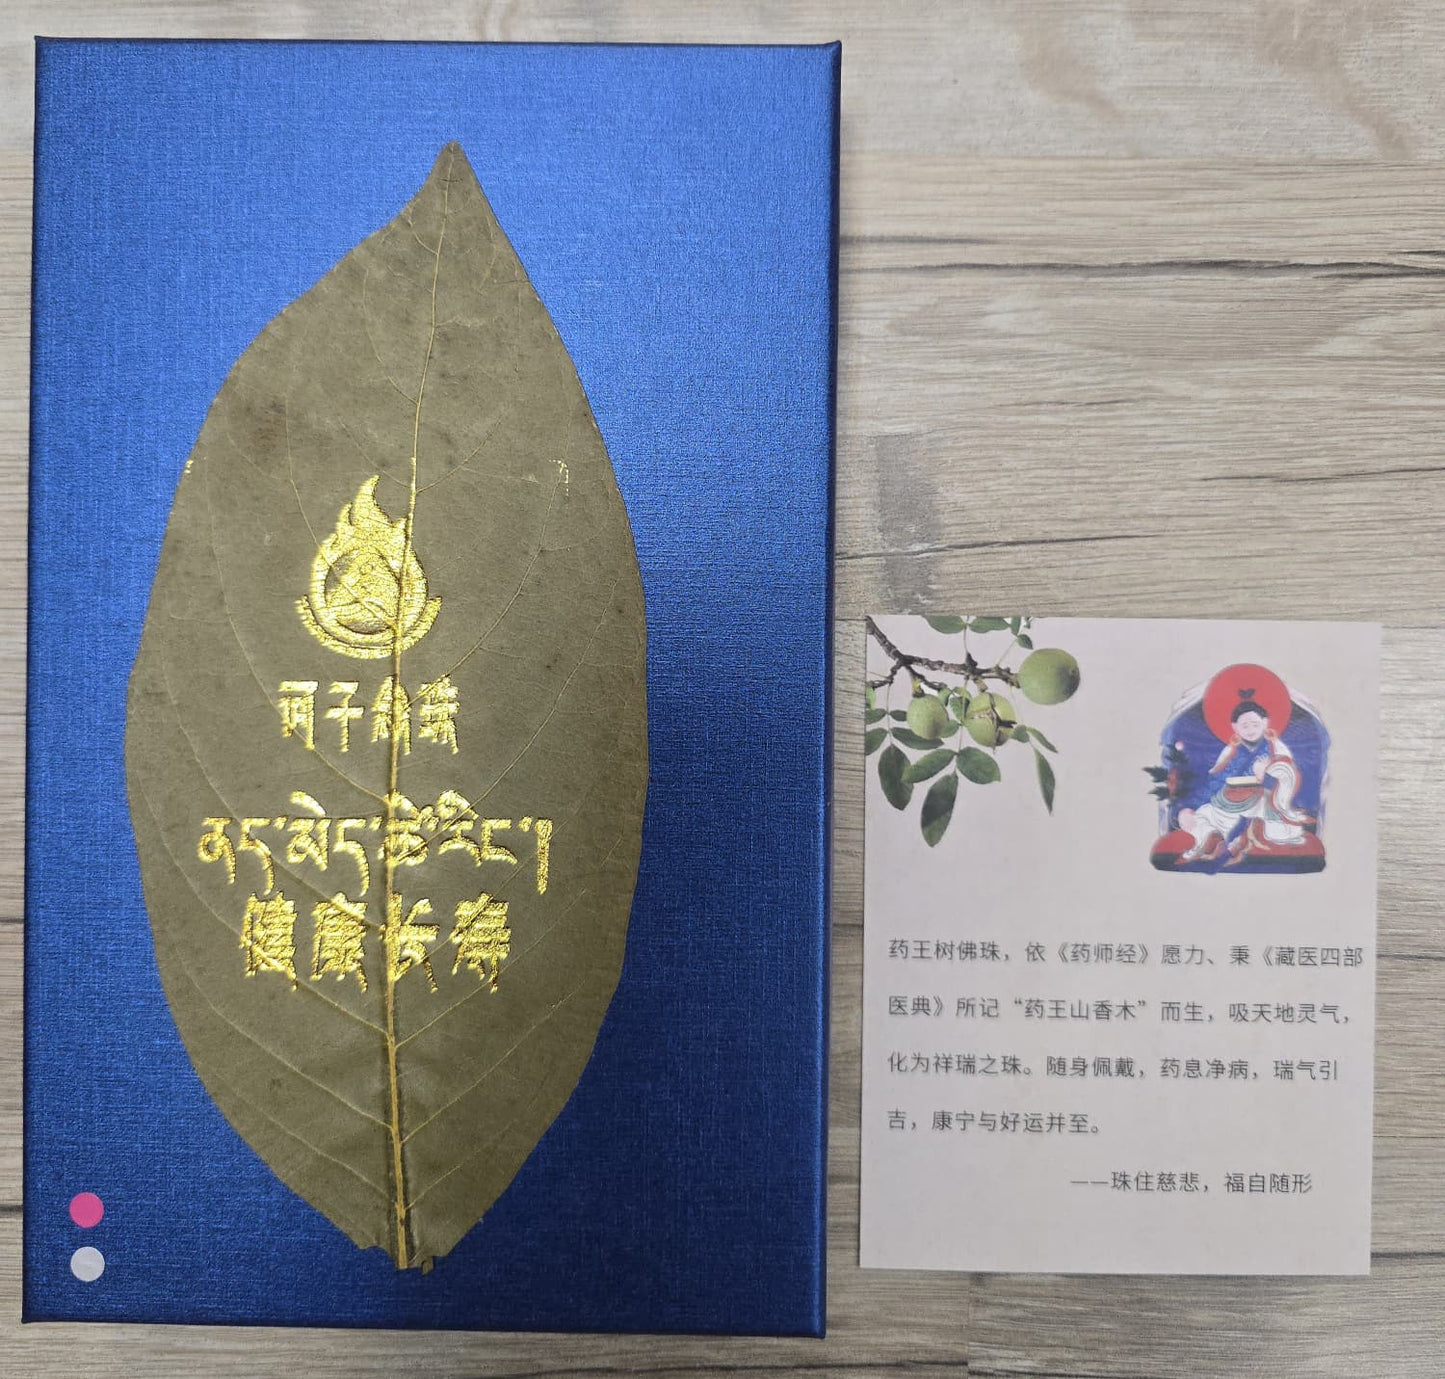 诃子佛珠
ནད་མེད་ཚེ་རིང་།
健康长寿
药王树佛珠，依《药师经》愿力、秉《藏医四部
医典》所记“药王山香木”而生，吸天地灵气，
化为祥瑞之珠。随身佩戴，药息净病，瑞气引
吉，康宁与好运并至。
——珠住慈悲，福自随形